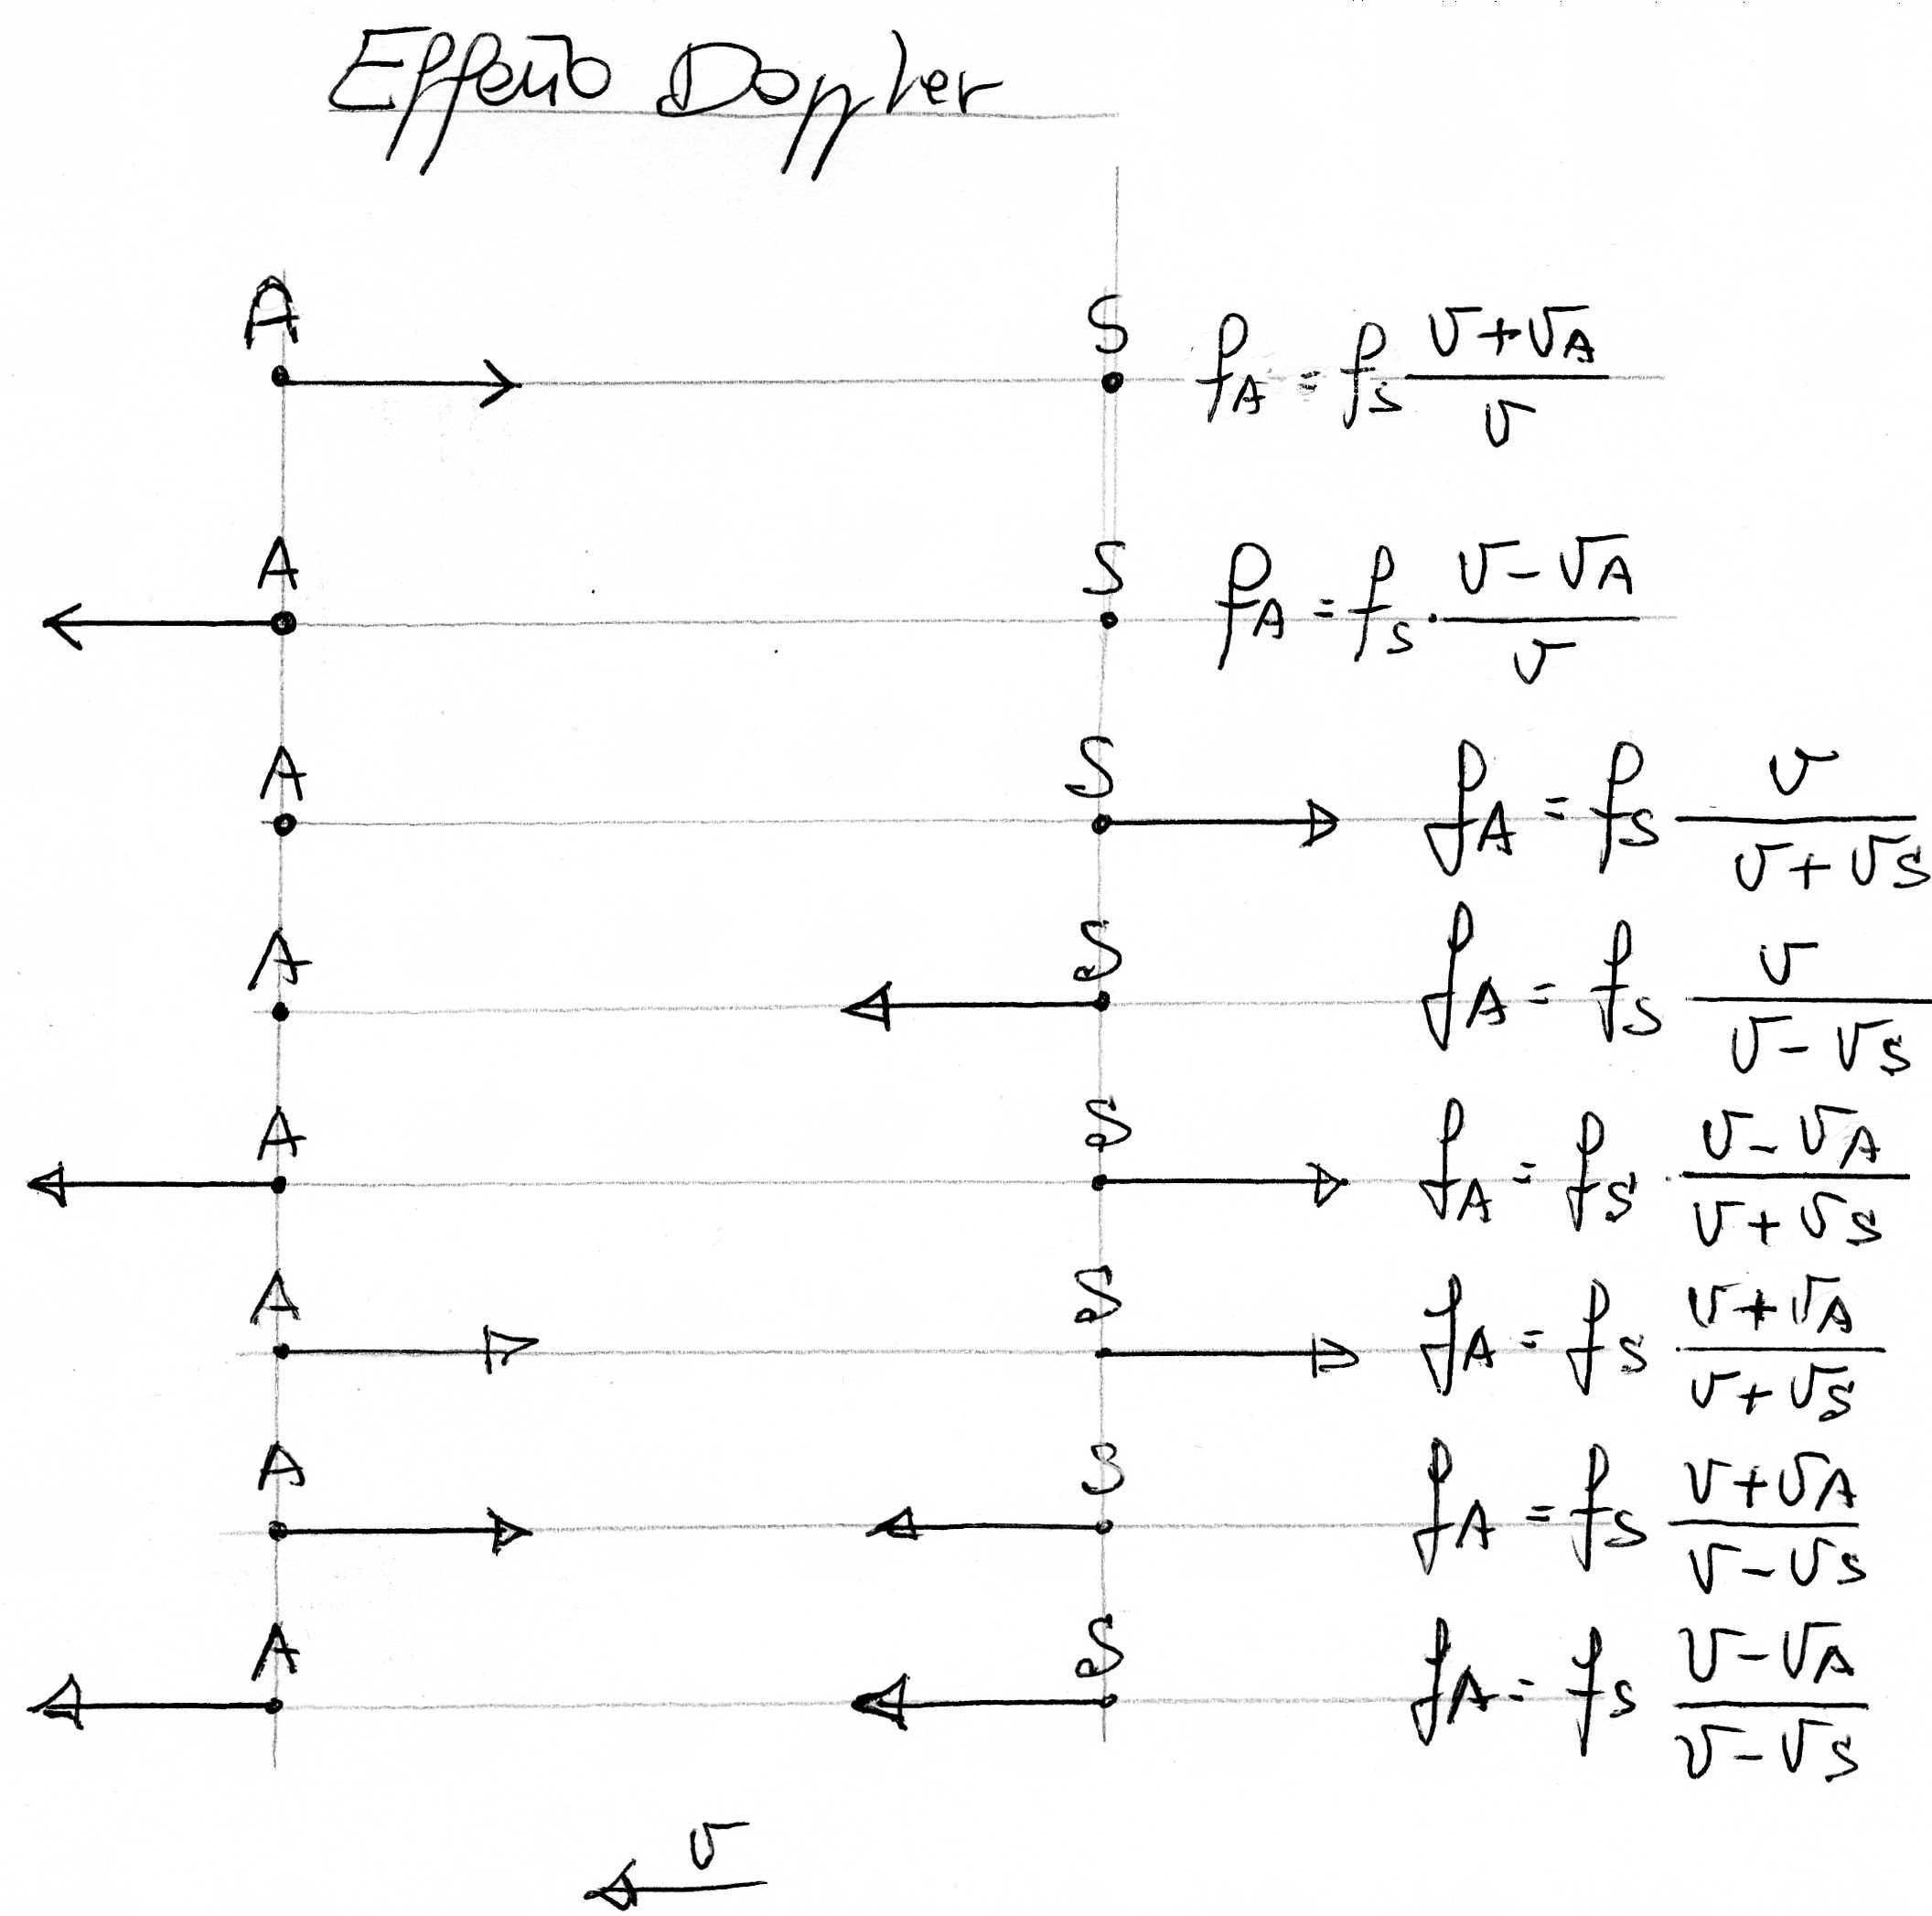 Effetto Doppler
A S f_A = f_S (v + v_A) / v
A S f_A = f_S · (v - v_A) / v
A S f_A = f_S v / (v + v_S)
A S f_A = f_S v / (v - v_S)
A S f_A = f_S · (v - v_A) / (v + v_S)
A S f_A = f_S (v + v_A) / (v + v_S)
A S f_A = f_S (v + v_A) / (v - v_S)
A S f_A = f_S (v - v_A) / (v - v_S)
v